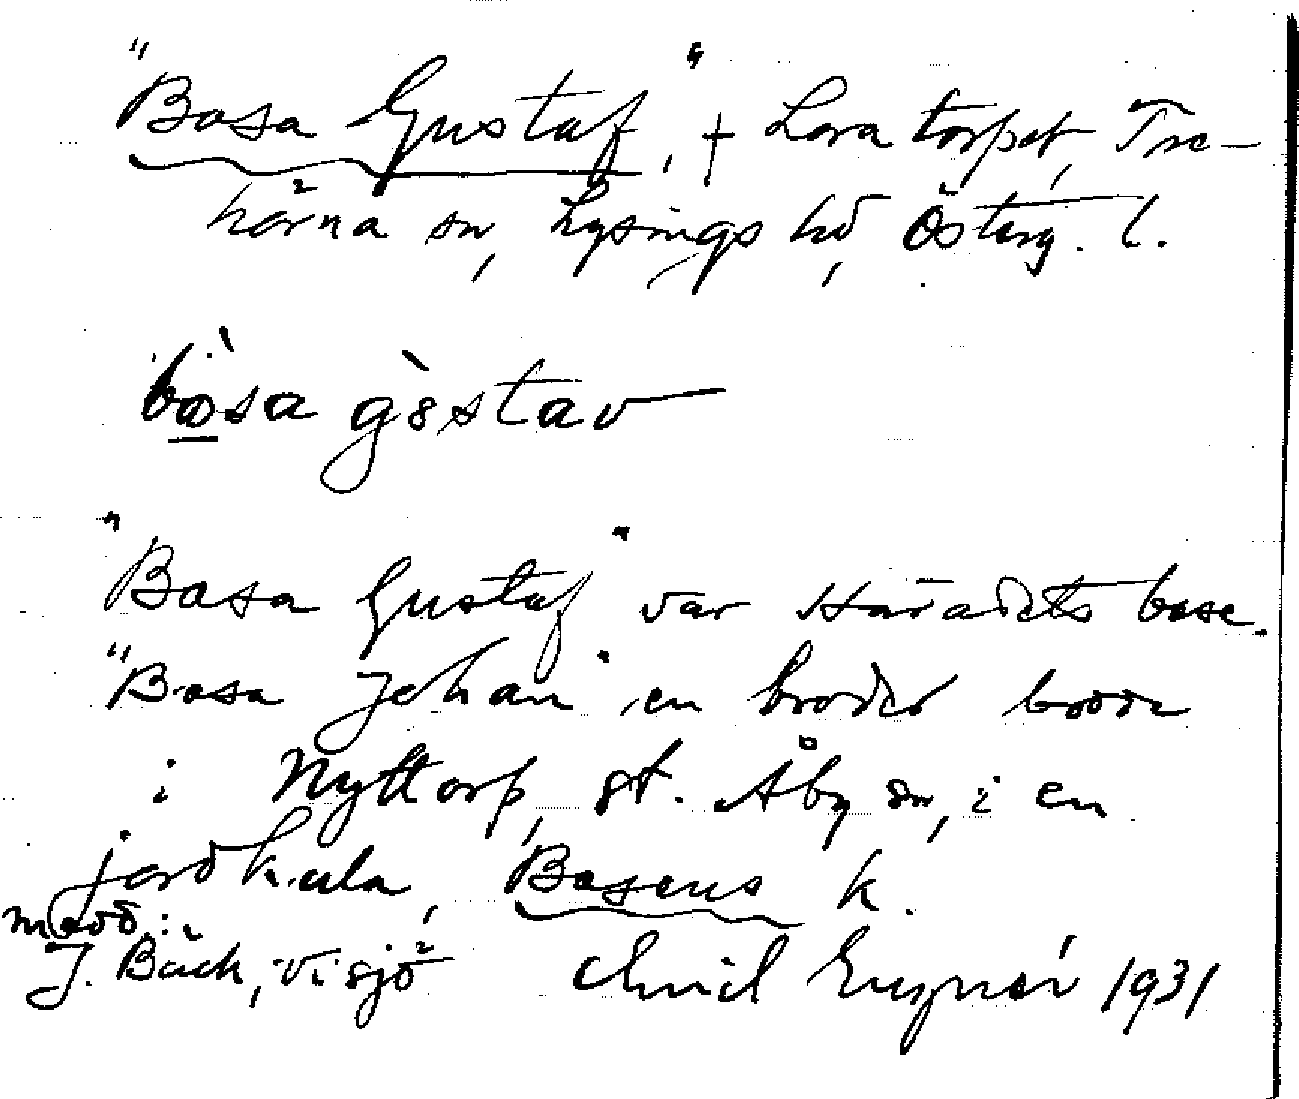 "Basa Gustaf", † Lora torpet, Tre-
hörna sn, Lysings hd, Österg. l.
bòsa gòstav
"Basa Gustaf" var Häradets base.
"Basa Johan" en broder bodde
i Nyttorp, St. Åby sn, i en
jordkula, Basens k.
medd.:
J. Bäck, Visjö Emil 1931